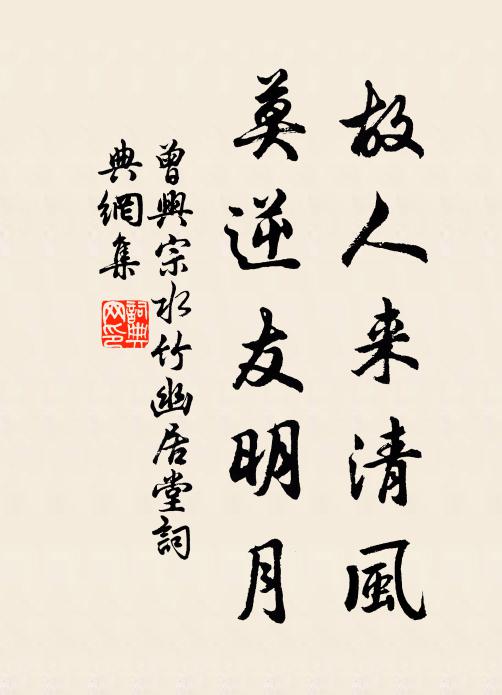 故人来清風
莫逆友明月
曾興宗水竹幽居堂詞
典網集
詞典
网印